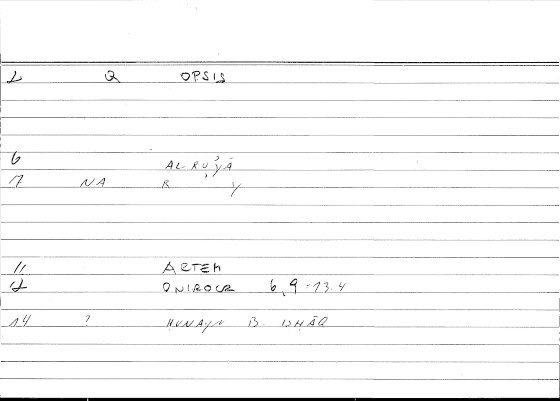 2 Q OPSIS
6 AL-RU'YĀ
7 NA R ' Y
11 ARTEM
12 ONIROCR 6,9-13.4
14 ? HUNAYN B. ISHĀQ